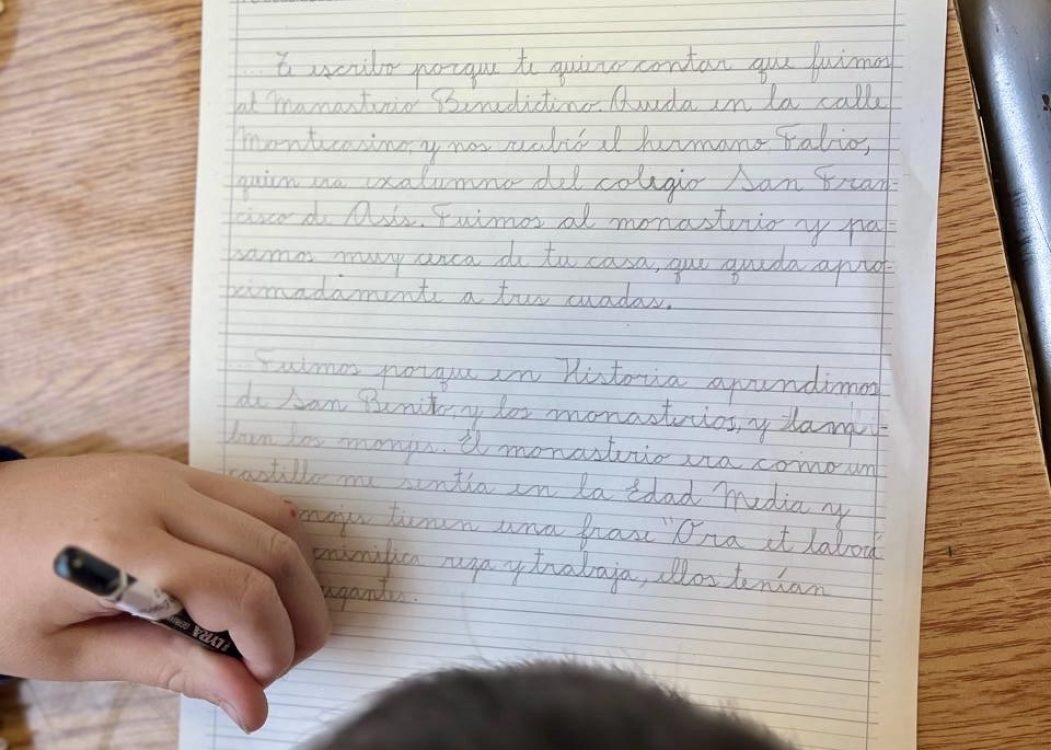 Te escribo porque te quiero contar que fuimos
al Manasterio Benedictino. Queda en la calle
Monticasino, y nos recibió el hermano Fabio,
quien era exalumno del colegio San Fran-
cisco de Asís. Fuimos al monasterio y pa-
samos muy cerca de tu casa, que queda apro-
ximadamente a tres cuadas.
Fuimos porque en Historia aprendimos
de San Benito, y los monasterios, y tam-
bien los monges. El monasterio era como un
castillo me sentía en la Edad Media y
monjes tienen una frase "Ora et labora
reza y trabaja, ellos tenían
LYRA